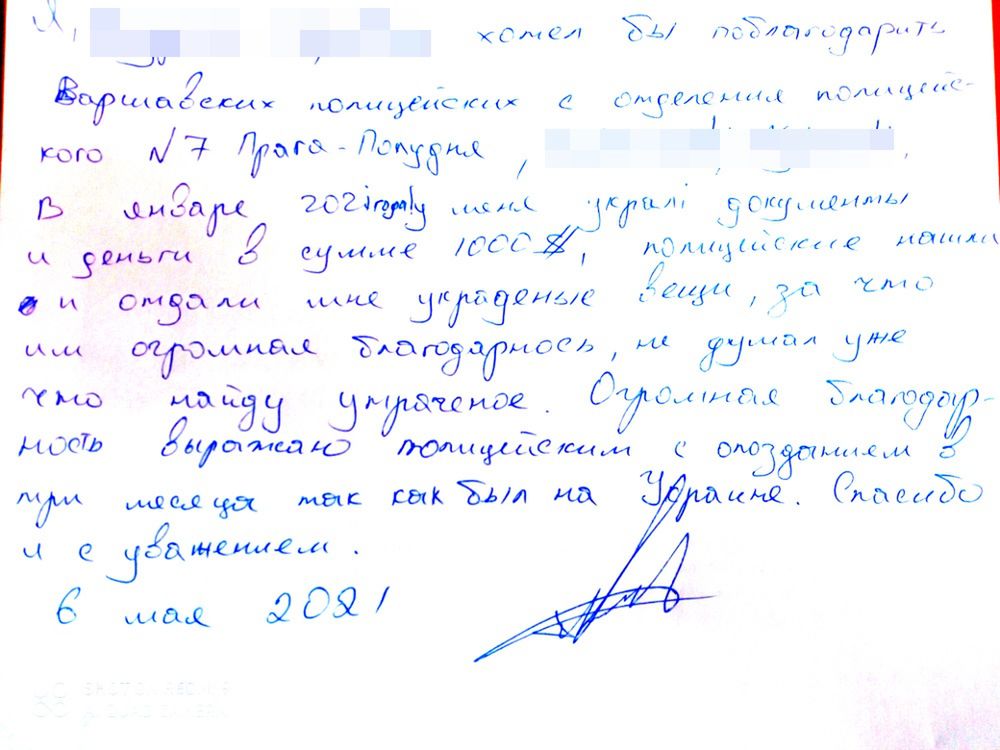 Я, хотел бы поблагодарить
Варшавских полицейских с отделения полицейс-
кого N7 Прага-Полудня,
В январе 2021 году меня укралі документы
и деньги в сумме 1000$, полицейские нашли
и отдали мне украденые вещи, за что
им огромная благодарнось, не думал уже
что найду утраченое. Огромная благодар-
ность выражаю полицейским с опозданием в
три месяца так как был на Украине. Спасибо
и с уважением.
6 мая 2021
SHOT ON REDMI 9
AI QUAD CAMERA